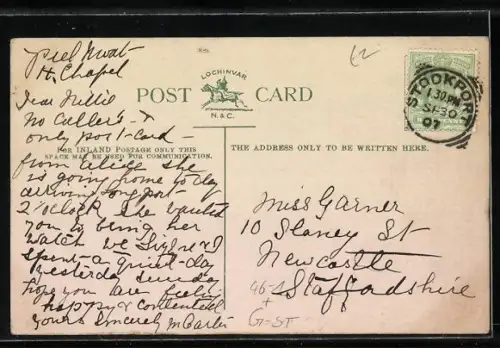 H. Chapel
Dear Nellie
No callers &
only post-card
from she
is going home to day
arriving Longport
2 o'clock she wanted
you to bring her
watch we & I
spent a quiet day
yesterday sunday
hope you are feeling
happy & contented
yours sincerely M Carter
LOCHINVAR
POST CARD
N. & C.
FOR INLAND POSTAGE ONLY THIS
SPACE MAY BE USED FOR COMMUNICATION.
THE ADDRESS ONLY TO BE WRITTEN HERE.
STOCKPORT
1.30 PM
SP 30
07
Miss Garner
10 Slaney St
Newcastle
Staffordshire
G-ST